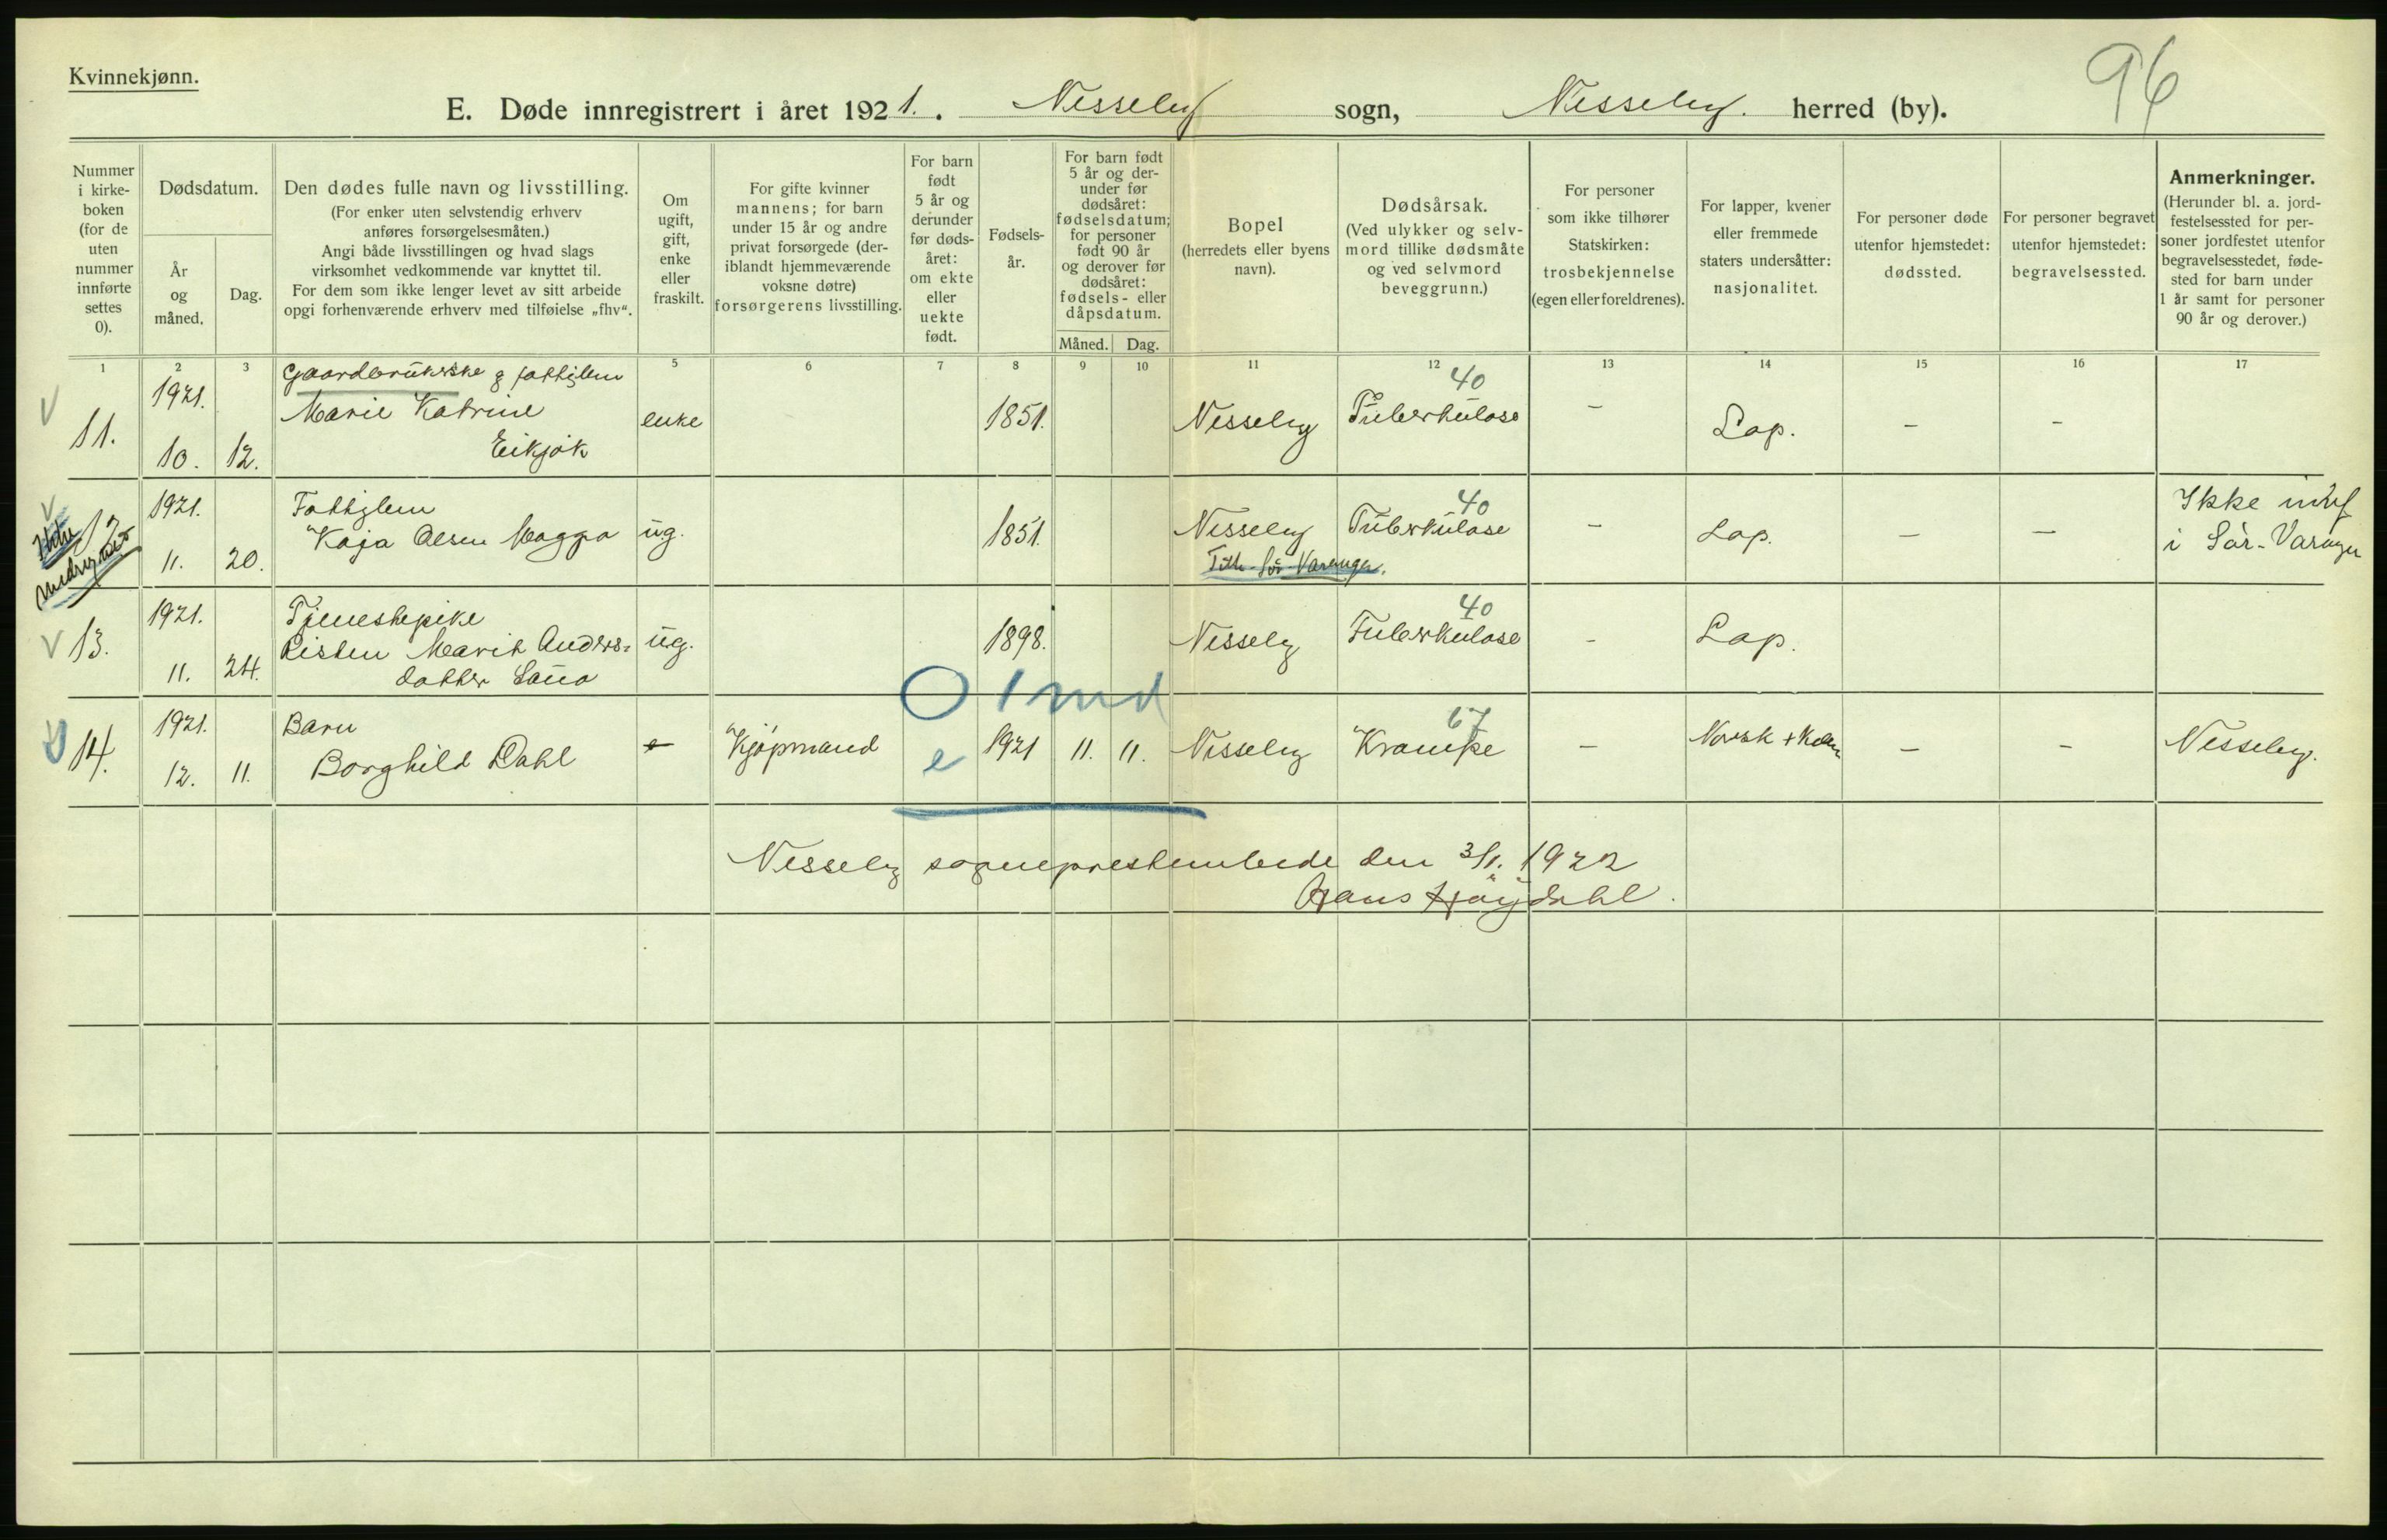 Kvinnekjønn.
96
E. Døde innregistrert i året 1921. Nesseby sogn, Nesseby. herred (by).
Nummer i kirke-boken (for de uten nummer innførte settes 0).
Dødsdatum.
År og måned.
Dag.
Den dødes fulle navn og livsstilling.
(For enker uten selvstendig erhverv
anføres forsørgelsesmåten.)
Angi både livsstillingen og hvad slags
virksomhet vedkommende var knyttet til.
For dem som ikke lenger levet av sitt arbeide
opgi forhenværende erhverv med tilføielse „fhv“.
Om ugift, gift, enke eller fraskilt.
For gifte kvinner
mannens; for barn
under 15 år og andre
privat forsørgede (der-
iblandt hjemmeværende
voksne døtre)
forsørgerens livsstilling.
For barn født 5 år og derunder før døds-året: om ekte eller uekte født.
Fødsels-år.
For barn født
5 år og der-
under før
dødsåret:
fødselsdatum;
for personer
født 90 år
og derover før
dødsåret:
fødsels- eller
dåpsdatum.
Måned. Dag.
Bopel
(herredets eller byens
navn).
Dødsårsak.
(Ved ulykker og selv-
mord tillike dødsmåte
og ved selvmord
beveggrunn.)
For personer
som ikke tilhører
Statskirken:
trosbekjennelse
(egen eller foreldrenes).
For lapper, kvener
eller fremmede
staters undersåtter:
nasjonalitet.
For personer døde
utenfor hjemstedet:
dødssted.
For personer begravet
utenfor hjemstedet:
begravelsessted.
Anmerkninger.
(Herunder bl. a. jord-
festelsessted for per-
soner jordfestet utenfor
begravelsesstedet, føde-
sted for barn under
1 år samt for personer
90 år og derover.)
1 2 3 5 6 7 8 9 10 11 12 13 14 15 16 17
11. 1921. 10. 12. Gaardbrukerske g fattiglem
Marie Katrine
Eikjok enke 1851. Nesseby 40 Tuberkulose - Lap. - -
Ikke medregnet
12 1921. 11. 20. Fattiglem
Kaja Olsen Magga ug. 1851. Nesseby 40 Tuberkulose - Lap. - -
Tilh. Sør-Varanger.
Ikke innf
i Sør-Varanger
13. 1921. 11. 24. Tjenestepike
Risten Marit Anders-
datter Sara ug. 1898. Nesseby 40 Tuberkulose - Lap.
0 1 md
14. 1921. 12. 11. Barn
Borghild Dahl e Kjøpmand e 1921 11. 11. Nesseby 67 Krampe - Norsk + - - Nesseby.
Nesseby sogneprestembede den 3/1. 1922
Hans Høydahl.